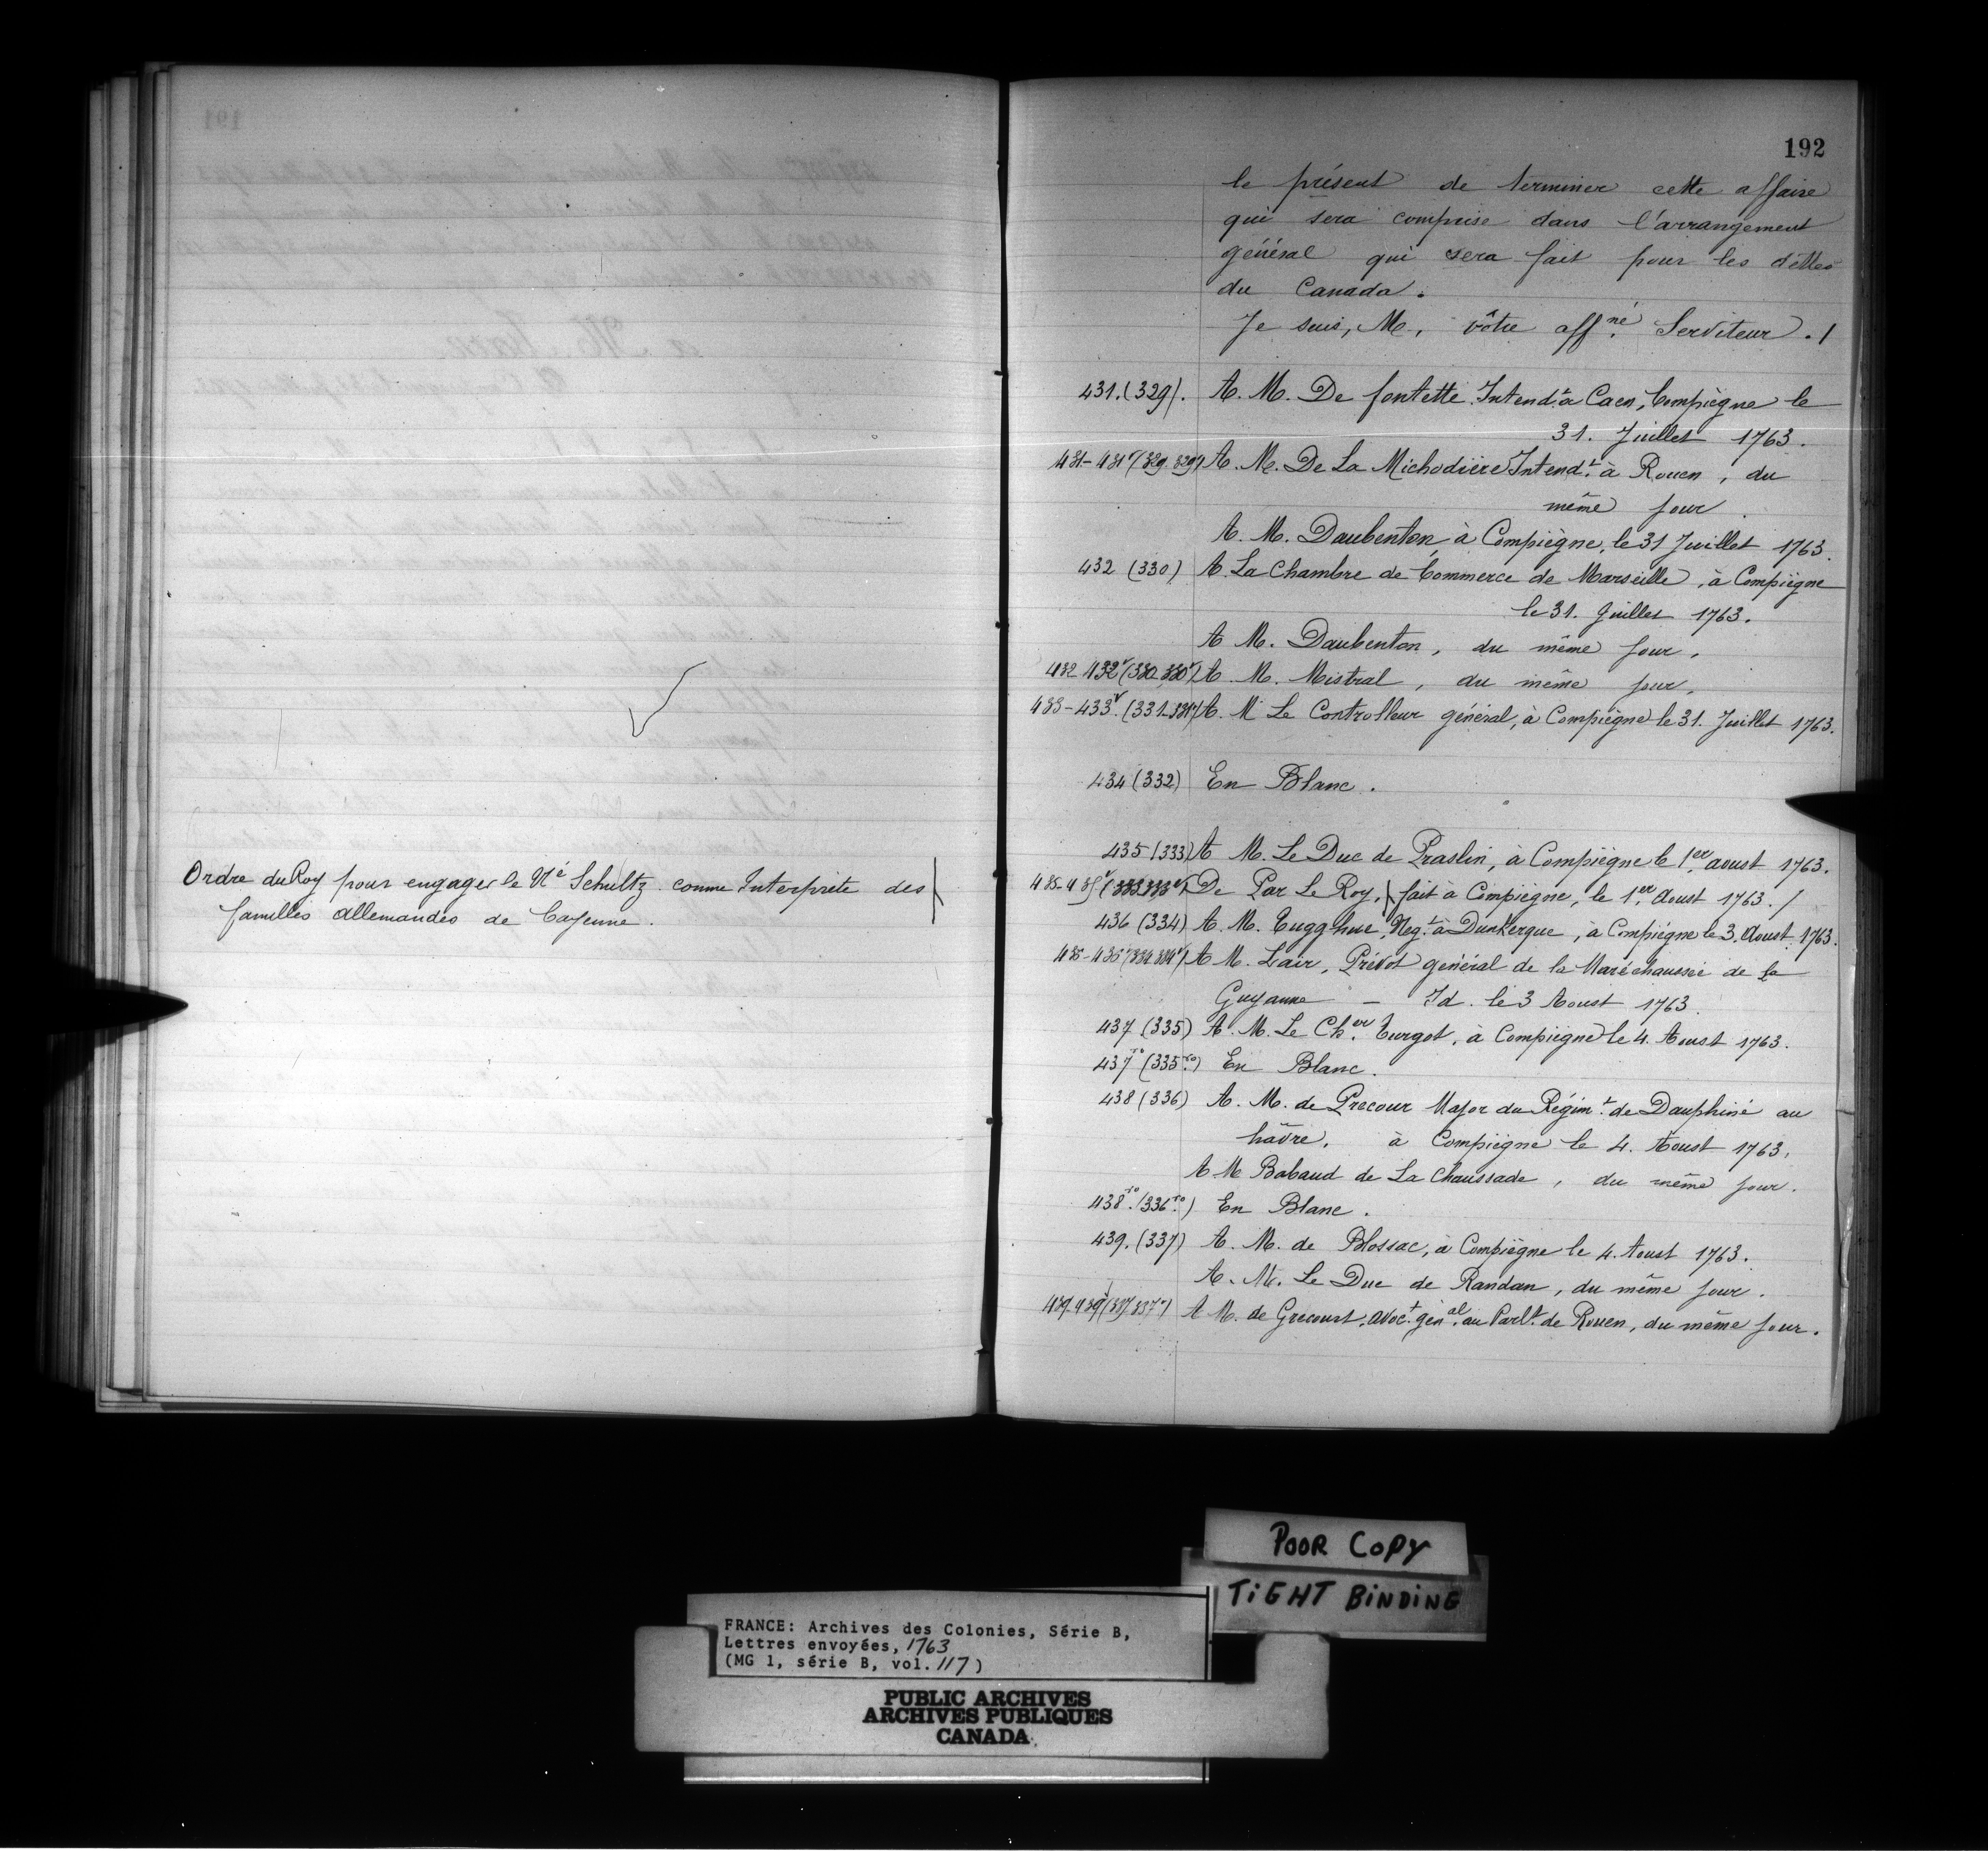 Ordre du Roy pour engager le Né Schultz comme Interprète des
familles allemandes de Cayenne.
192
le présent de terminer cette affaire
qui sera comprise dans l'arrangement
général qui sera fait pour les dettes
du Canada.
Je suis, M, vôtre aff.né Serviteur ./
431. (329). A. M. De fontette Intend.t à Caen, Compiègne le
31. Juillet 1763.
431-431v (329 329v) A. M. De La Michodière Intend.t à Rouen, du
même jour
A. M. Daubenton, à Compiègne, le 31 Juillet 1763.
432 (330) A. La Chambre de Commerce de Marseille, à Compiègne
le 31. Juillet 1763.
A M. Daubenton, du même jour.
432-432v (330-330v) A. M. Mistral, du même jour.
433-433v. (331-331v) A. M Le Controlleur général, à Compiègne le 31. Juillet 1763.
434 (332) En Blanc.
435 (333) A M. Le Duc de Praslin, à Compiègne le 1.er aoust 1763.
435-435v (333 333v) De Par Le Roy, fait à Compiègne, le 1.er Aoust 1763. /
436 (334) A. M. Tugghue, Neg.t à Dunkerque, à Compiègne le 3. Aoust 1763.
436-436v (334 334v) A M. Lair, Prévot général de la Maréchaussée de la
Guyanne - Id. le 3 Aoust 1763.
437 (335) A. M. Le Ch.er Turgot, à Compiègne le 4. Aoust 1763.
437ro (335ro) En Blanc.
438 (336) A. M. de Precour Major du Régim.t de Dauphiné au
hâvre, à Compiègne le 4. Aoust 1763.
A M Babaud de La Chaussade, du même jour.
438ro. (336ro.) En Blanc.
439. (337) A. M. de Blossac, à Compiègne le 4. Aoust 1763.
A. M. Le Duc de Randan, du même jour.
439-439v (337 337v) A M. de Grecourt, avoc.t gén.al au Parl.t de Rouen, du même jour.
POOR COPY
TIGHT BINDING
FRANCE: Archives des Colonies, Série B,
Lettres envoyées, 1763
(MG 1, série B, vol. 117)
PUBLIC ARCHIVES
ARCHIVES PUBLIQUES
CANADA